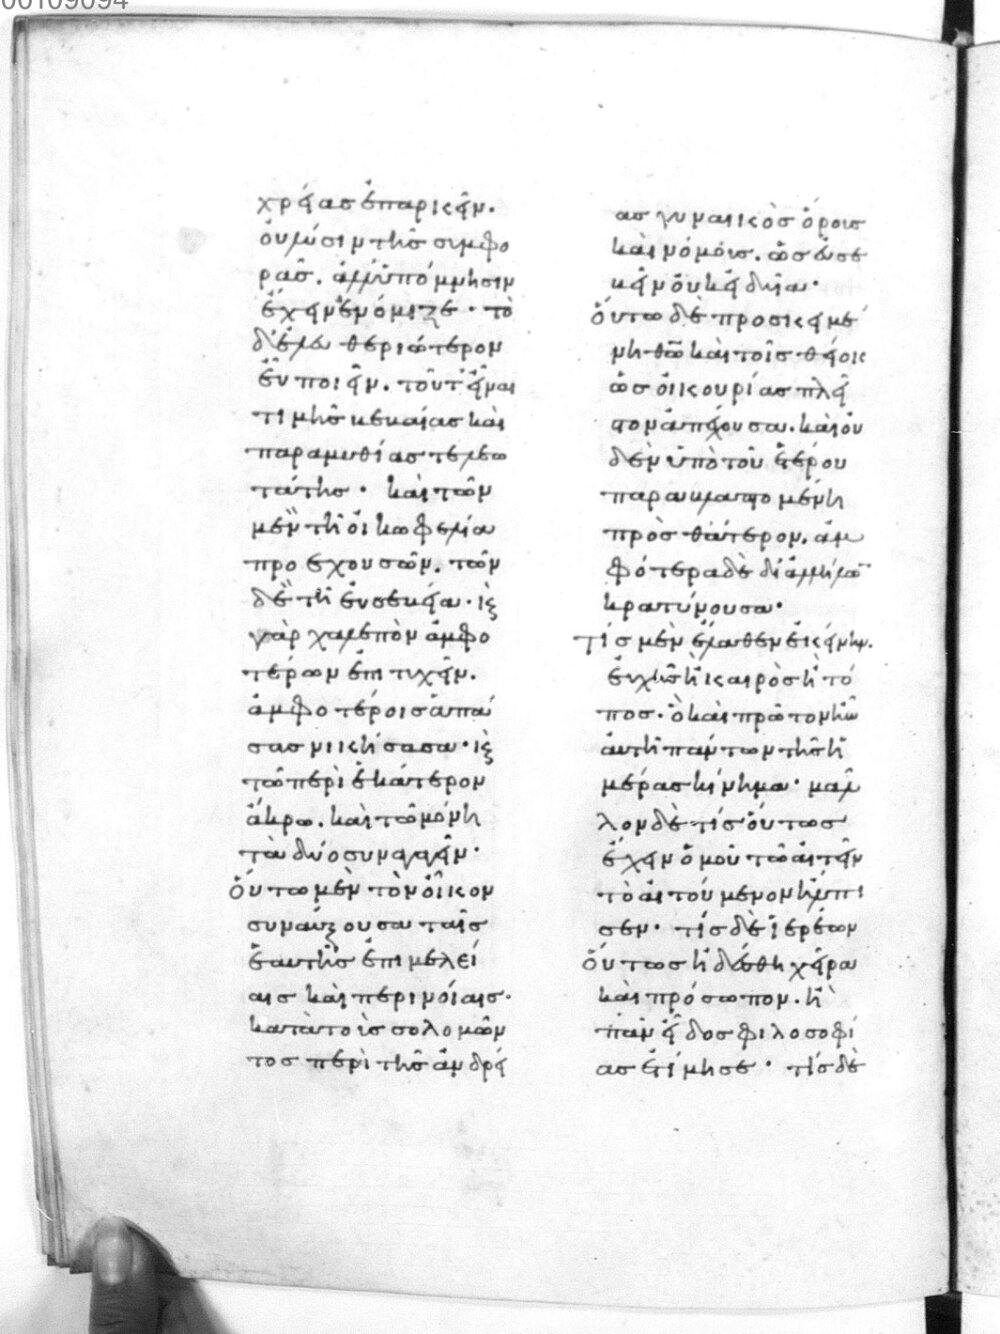 00109094
χρείας ἐπαρκεῖν.
οὐ λύσιν τῆς συμφο
ρᾶς. ἀλλ' ὑπόμνησιν
ἔχειν ἐνόμιζε· τὸ
δ' ἐλεω θεριώτερον
ἐν ποιεῖν. τοῦτ' εἶναι
τιμῆς κεναίας καὶ
παραμυθίας τελεω
τάτης· καὶ τῶν
μὲν τῆ οἰκωφελία
προεχουσῶν. τῶν
δὲ τῆ εὐσεβεία· κ(αὶ)
γὰρ χαλεπὸν ἀμφο
τέρων ἐπιτυχεῖν.
ἀμφοτέροις ἁπά
σας νικήσασα· κ(αὶ)
τῶ περὶ ἑκάτερον
ἄκρω. καὶ τῶ μόνη
τὰ δύο συναγαγεῖν·
οὕτω μὲν τὸν οἶκον
συναύξουσα ταῖς
ἑαυτῆς ἐπιμελεί
αις καὶ περινοίαις.
κατὰ τοὺς σολομῶν
τος περὶ τῆς ἀνδρεί
ας γυναικὸς ὅροις
καὶ νόμοις. ὡς ὧσε
κεῖν οὐκ εἰδυῖα·
οὕτω δὲ προσκειμέ
νη θ(ε)ῶ καὶ τοῖς θείοις
ὡς οἰκουρίας πλεῖ
στον ἀπέχουσα. καὶ οὐ
δὲν ὑπὸ τοῦ ἑτέρου
παρακλαπτομένη
πρὸς θάτερον. ἀμ
φότερα δὲ δι' ἀλλήλω(ν)
κρατύνουσα·
τίς μὲν ἔλαθεν ἐκείνην.
εὐχῆς ἢ καιρὸς ἢ τό
πος. ὃ καὶ πρῶτον ἦν
αὐτῆ πάντων τῆς ἡ
μέρας κίνημα· μᾶλ
λον δὲ τίς οὕτως
ἔχειν ὁμοῦ τῶ αἰτεῖν
τὸ αἰτούμενον ἤλπι
σεν· τίς δὲ ἱερέων
οὕτως ἠδέσθη χεῖρα
καὶ πρόσωπον. ἢ
πᾶν εἶδος φιλοσοφί
ας ἐτίμησε· τίς δὲ